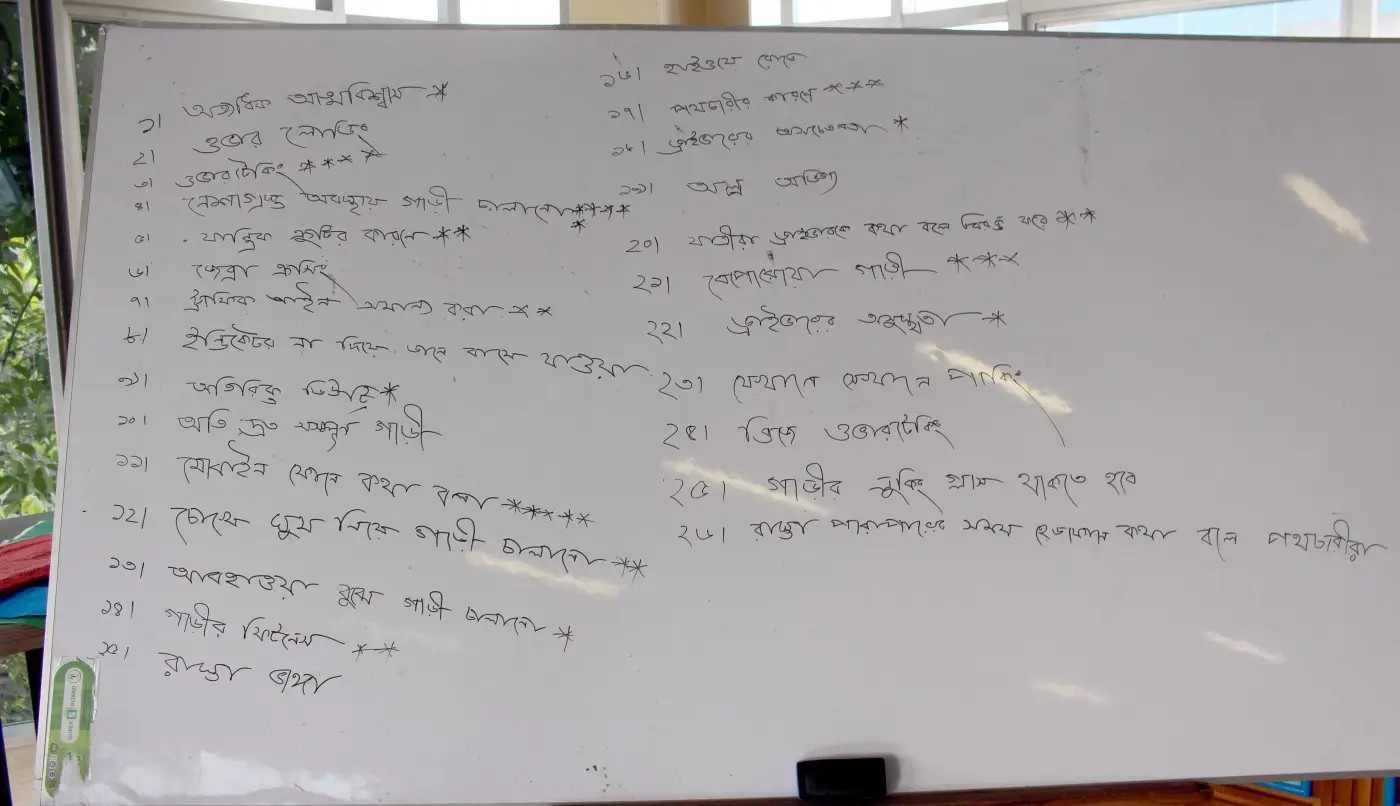 ১। অত্যধিক আত্মবিশ্বাস *
২। ওভার লোডিং
৩। ওভারটেকিং ****
৪। নেশাগ্রস্ত অবস্থায় গাড়ী চালানো *****
৫। যান্ত্রিক ত্রুটির কারনে **
৬। জেব্রা ক্রসিং
৭। ট্রাফিক আইন অমান্য করা **
৮। ইন্ডিকেটর না দিয়ে ডানে বামে যাওয়া
৯। অতিরিক্ত ডিউটি *
১০। অতি দ্রুত সম্পন্ন গাড়ী
১১। মোবাইল ফোনে কথা বলা *****
১২। চোখে ঘুম নিয়ে গাড়ী চালানো **
১৩। আবহাওয়া বুঝে গাড়ী চালানো *
১৪। গাড়ীর ফিটনেস **
১৫। রাস্তা ভাঙ্গা
১৬। হাইওয়ে
১৭। পথচারীর কারণে ***
১৮। ড্রাইভারের অসচেতনতা *
১৯। অল্প অভিজ্ঞ
২০। যাত্রীরা ড্রাইভারকে কথা বলে বিরক্ত করে **
২১। বেপোরোয়া গাড়ী ***
২২। ড্রাইভারের অসুস্থতা *
২৩। যেখানে সেখানে পার্কিং
২৪। ব্রিজে ওভারটেকিং
২৫। গাড়ীর লুকিং গ্লাস থাকতে হবে
২৬। রাস্তা পারাপারের সময় হেডফোনে কথা বলে পথচারীরা
SUPER BOARD